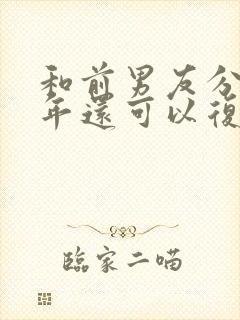 和前男友分
年還可以復
臨家二喵